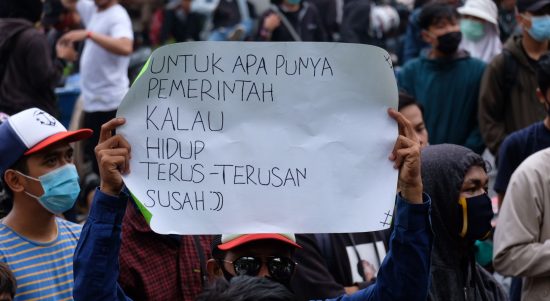 UNTUK APA PUNYA
PEMERINTAH
KALAU
HIDUP
TERUS-TERUSAN
SUSAH:))